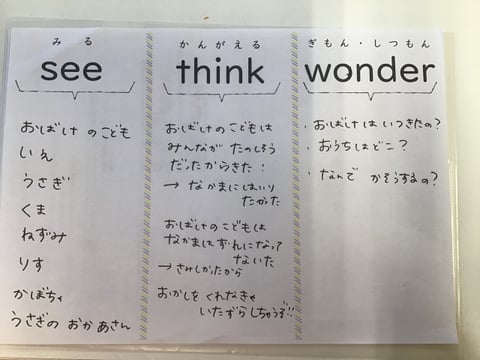 みる
see
おばけ の こども
いえ
うさぎ
くま
ねずみ
りす
かぼちゃ
うさぎの おかあさん
かんがえる
think
おばけのこどもは
みんなが たのしそう
だったからきた！
→ なかまにはいり
たかった
おばけのこどもは
なかまはずれになって
ないた
→ さみしかったから
おかしを くれなきゃ
いたずらしちゃうぞ!!
ぎもん・しつもん
wonder
・おばけは いつきたの？
・おうちはどこ？
・なんで かそうするの？